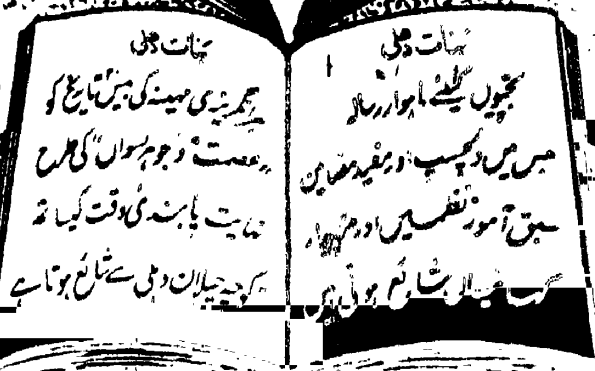 بنات دہلی
بچیوں کیلئے ماہوار رسالہ
جس میں دلچسپ اور مفید مضامین
سبق آموز نظمیں اور
کہانیاں شائع ہوتی ہیں
بنات دہلی
انگریزی مہینہ کی بیس تاریخ کو
"عصمت" و "جوہر نسواں" کی طرح
نہایت پابندی وقت کیساتھ
کوچہ چیلان دہلی سے شائع ہوتا ہے